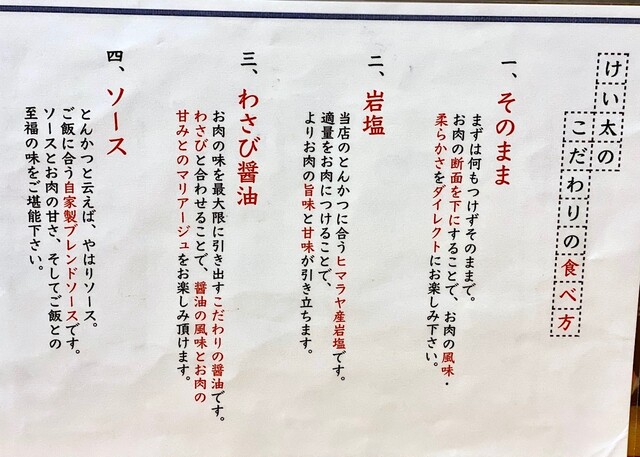 けい太の
こだわりの食べ方
一、そのまま
まずは何もつけずそのままで。
お肉の断面を下にすることで、お肉の風味・
柔らかさをダイレクトにお楽しみ下さい。
二、岩塩
当店のとんかつに合うヒマラヤ産岩塩です。
適量をお肉につけることで、
よりお肉の旨味と甘味が引き立ちます。
三、わさび醤油
お肉の味を最大限に引き出すこだわりの醤油です。
わさびと合わせることで、醤油の風味とお肉の
甘みとのマリアージュをお楽しみ頂けます。
四、ソース
とんかつと云えば、やはりソース。
ご飯に合う自家製ブレンドソースです。
ソースとお肉の甘さ、そしてご飯との
至福の味をご堪能下さい。